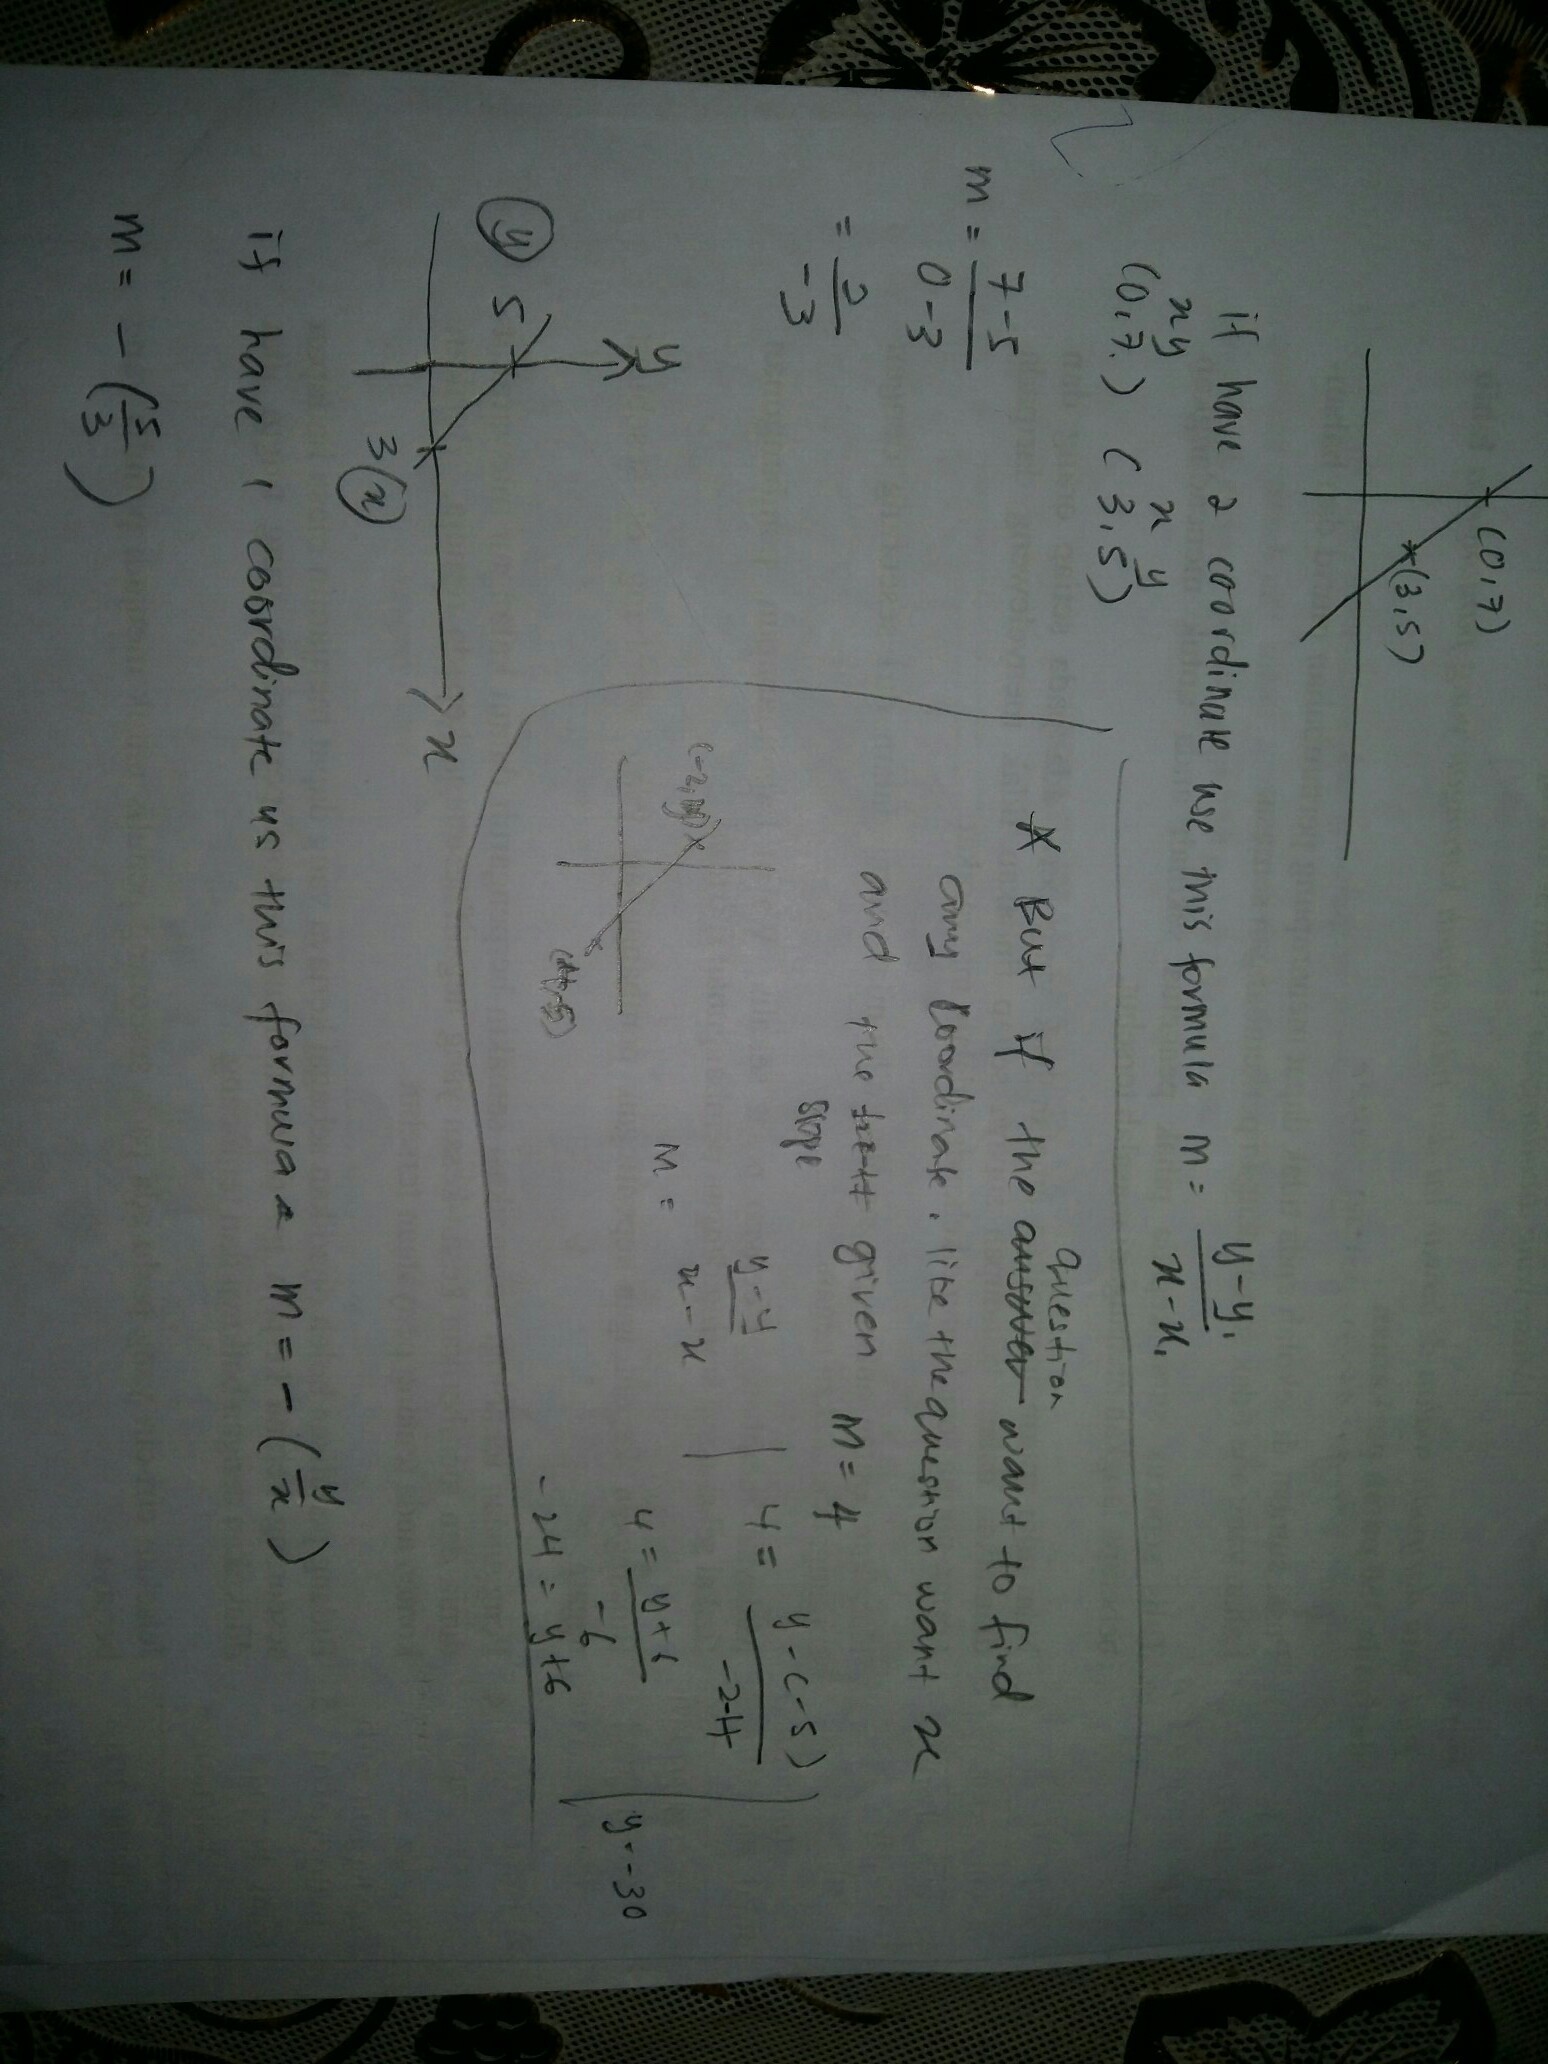 (0,7)
(3,5)
if have 2 coordinate use this formula m = y-y₁
x-x₁
x y x y
(0,7) (3,5)
m = 7-5
0-3
= 2
-3
question
* But if the answer want to find
any coordinate, like the question want x
and the given M = 4
slope
(-2,y)
M = y-y
x-x
4 = y-(-5)
-2-4
4 = y+6
-6
-24 = y+6
y=-30
y
(y) 5
3(x)
x
if have 1 coordinate us this formula m = -(y/x)
m = -(5/3)